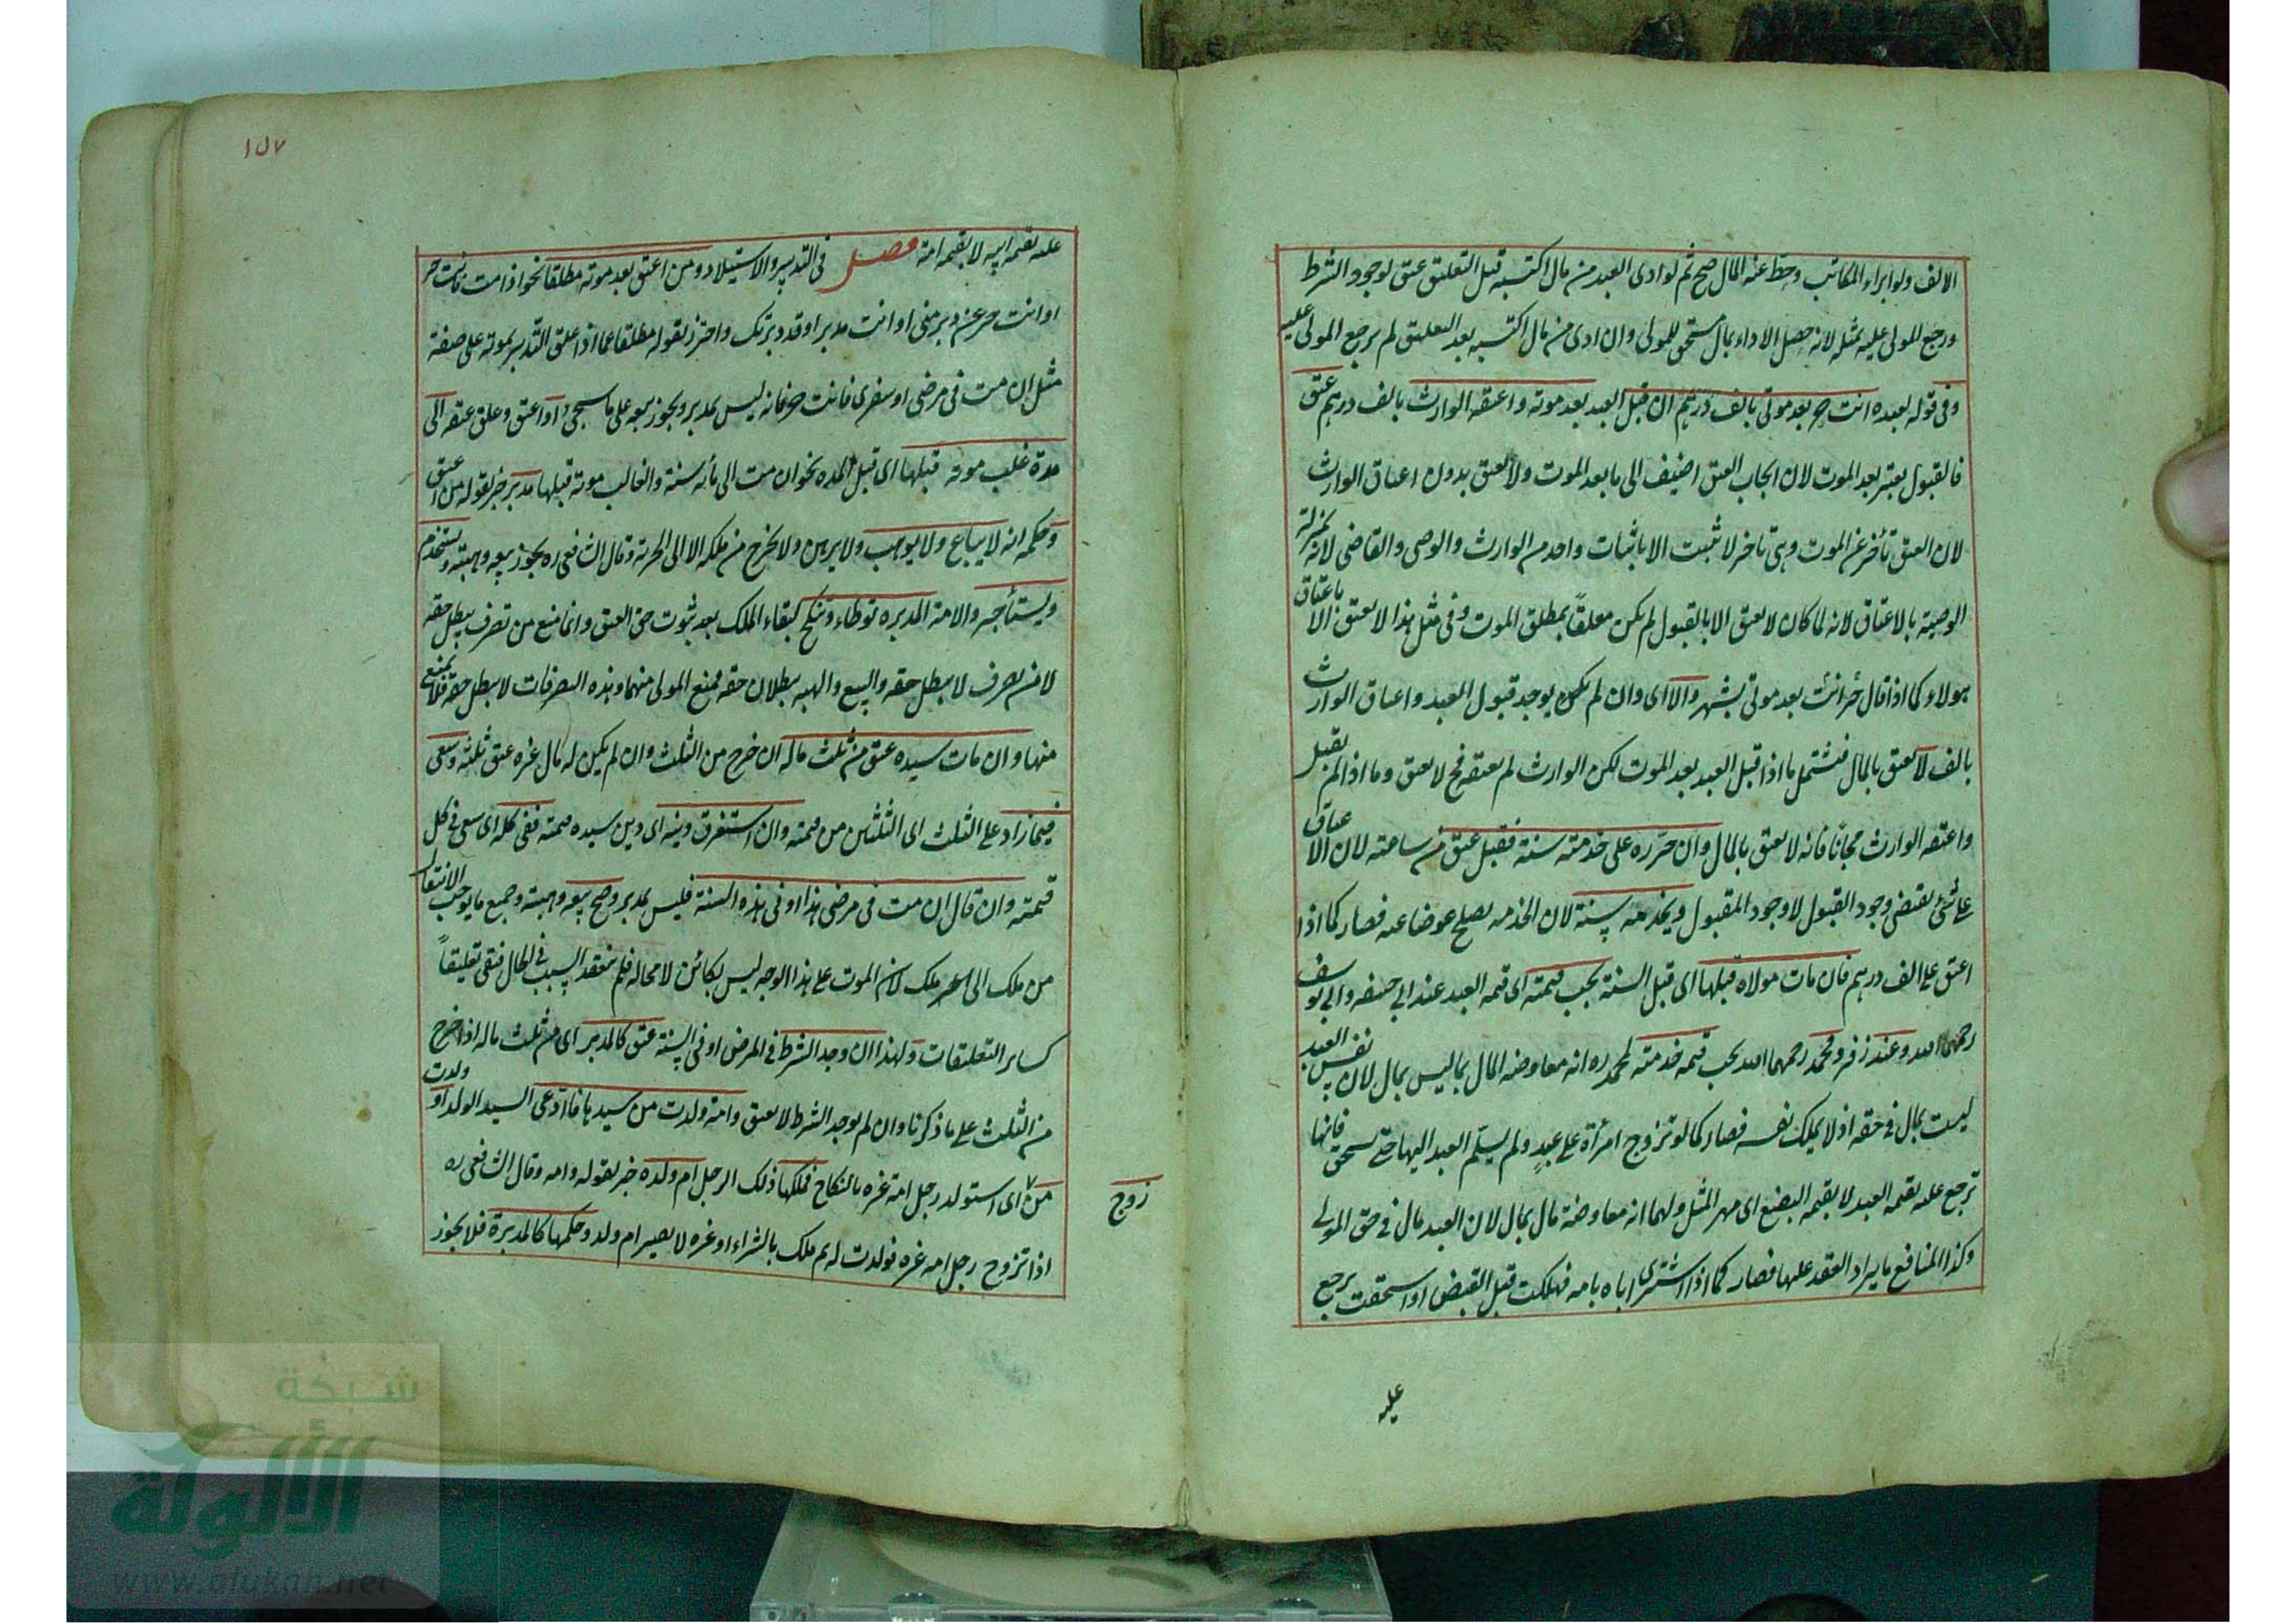 الالف ولو ابراء المكاتب وحط عنه المال صح ثم لو ادى العبد من مال اكتسبه قبل التعليق عتق لوجود الشرط
ورجع المولى عليه بمثله لانه حصل الاداء بمال مستحق للمولى وان ادى من مال اكتسبه بعد التعليق لم يرجع المولى عليه
وفى قوله لعبده انت حر بعد موتى بالف درهم ان قبل العبد بعد موته واعتقه الوارث بالف درهم عتق
فالقبول يعتبر بعد الموت لان ايجاب العتق اضيف الى ما بعد الموت ولا يعتق بدون اعتاق الوارث
لان العتق تأخر عن الموت ومتى تاخر لا تثبت الا باثبات واحد من الوارث والوصى والقاضى لانه بمنزلة
الوصية بالاعتاق لانه لما كان لا يعتق الا بالقبول لم يكن معلقاً بمطلق الموت وفى مثل هذا لا يعتق الا باعتاق
هولاء كما اذا قال حر انت بعد موتى بشهر والا اى وان لم يكن يوجد قبول العبد واعتاق الوارث
بالف لا يعتق بالمال فتشتمل ما اذا قبل العبد بعد الموت لكن الوارث لم يعتقه فح لا يعتق وما اذا لم يقبل
واعتقه الوارث مجاناً فانه لا يعتق بالمال وان حرره على خدمته سنة فقبل عتق من ساعته لان الا عتاق
على شئ يقتضى وجود القبول لا وجود المقبول ويخدمه سنة لان الخدمه يصلح عوضا عنه فصار كما اذا
اعتق على الف درهم فان مات مولاه قبلها اى قبل السنة يجب قيمته اى قيمه العبد عند ابى حنيفه وابى يوسف
رحمهما الله وعند زفر ومحمد رحمهما الله يجب قيمه خدمته لمحمد ره انه معاوضه المال بما ليس بمال لان نفس العبد
ليست بمال فى حقه اذ لا يملك نفسه فصار كما لو تزوج امرأة على عبد ولم يسلّم العبد اليها حتى يستحق فانها
ترجع عليه بقيمه العبد لا بقيمه البضع اى مهر المثل ولهما انه معاوضة مال بمال لان العبد مال فى حق المولى
وكذا المنافع ما يراد العقد عليها فصار كما اذا اشترى اباه بامه فهلكت قبل القبض او استحقت يرجع
عليه
١٥٧
عليه بقيمه ابيه لا بقيمه امة فصل فى التدبير والاستيلاد ومن اعتق بعد موته مطلقا نحو اذا مت فانت حر
او انت حر عن دبر منى او انت مدبر او قد دبرتك واحترز بقوله مطلقا عما اذا علق التدبير بموته على صفة
مثل ان مت فى مرضى او سفرى فانت حر فانه ليس بمدبر ويجوز بيعه على ما سيجئ او اعتق وعلق عتقه الى
مدة غلب موته قبلها اى قبل المده نحو ان مت الى مأيه سنة والغالب موته قبلها مدبر خبر لقوله من اعتق
وحكمه انه لا يباع ولا يوهب ولا يرهن ولا يخرج من ملكه الا الى الحرية وقال الشافعى ره يجوز بيعه وهبته ويستخدم
ويستأجر والامة المدبره توطاء وتنكح لبقاء الملك بعد ثبوت حق العتق وانما منع من تصرف يبطل حقه
لا من تصرف لا يبطل حقه والبيع والهبه يبطلان حقه فمنع المولى منهما وهذه التصرفات لا يبطل حقه فلا يمنع
منها وان مات سيده عتق من ثلث ماله ان خرج من الثلث وان لم يكن له مال غيره عتق ثلثه وسعى
فيما زاد على الثلث اى الثلثين من قيمته وان استغرق دينه اى دين سيده قيمته ففى كله اى سعى فى كل
قيمته وان قال ان مت فى مرضى هذا او فى هذه السنة فليس بمدبر وصح بيعه وهبته وجميع ما يوجب الانتقال
من ملك الى ملك لان الموت على هذا الوجه ليس بكائن لا محاله فلم ينعقد السبب فى الحال فبقى تعليقاً
كساير التعليقات ولهذا ان وجد الشرط فى المرض او فى السنة عتق كالمدبر اى من ثلث ماله اذا خرج
من الثلث على ما ذكرنا وان لم يوجد الشرط لا يعتق وامة ولدت من سيدها فادّعى السيد الولد او ولدت
من اى استولد رجل امة غيره بالنكاح فملكها ذلك الرجل ام ولده خبر لقوله وامه وقال الشافعى ره
زوج
اذا تزوج رجل امه غيره فولدت له ثم ملك بالشراء او غيره لا يصير ام ولد وحكمها كالمدبرة فلا يجوز
شبكة
الألوكة
www.alukah.net